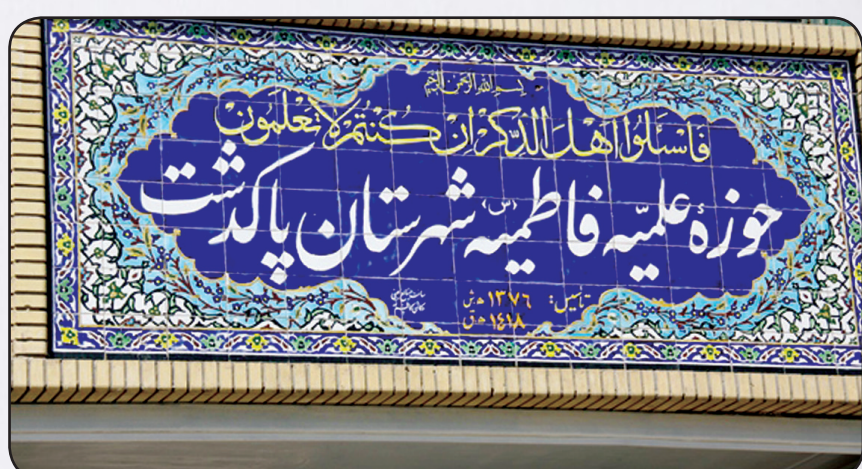 بسم الله الرحمن الرحیم
فاسئلوا اهل الذکر ان کنتم لا تعلمون
حوزهٔ علمیّه فاطمیه (س) شهرستان پاکدشت
تأسیس: ۱۳۷۶ ه ش
۱۴۱۸ ه ق